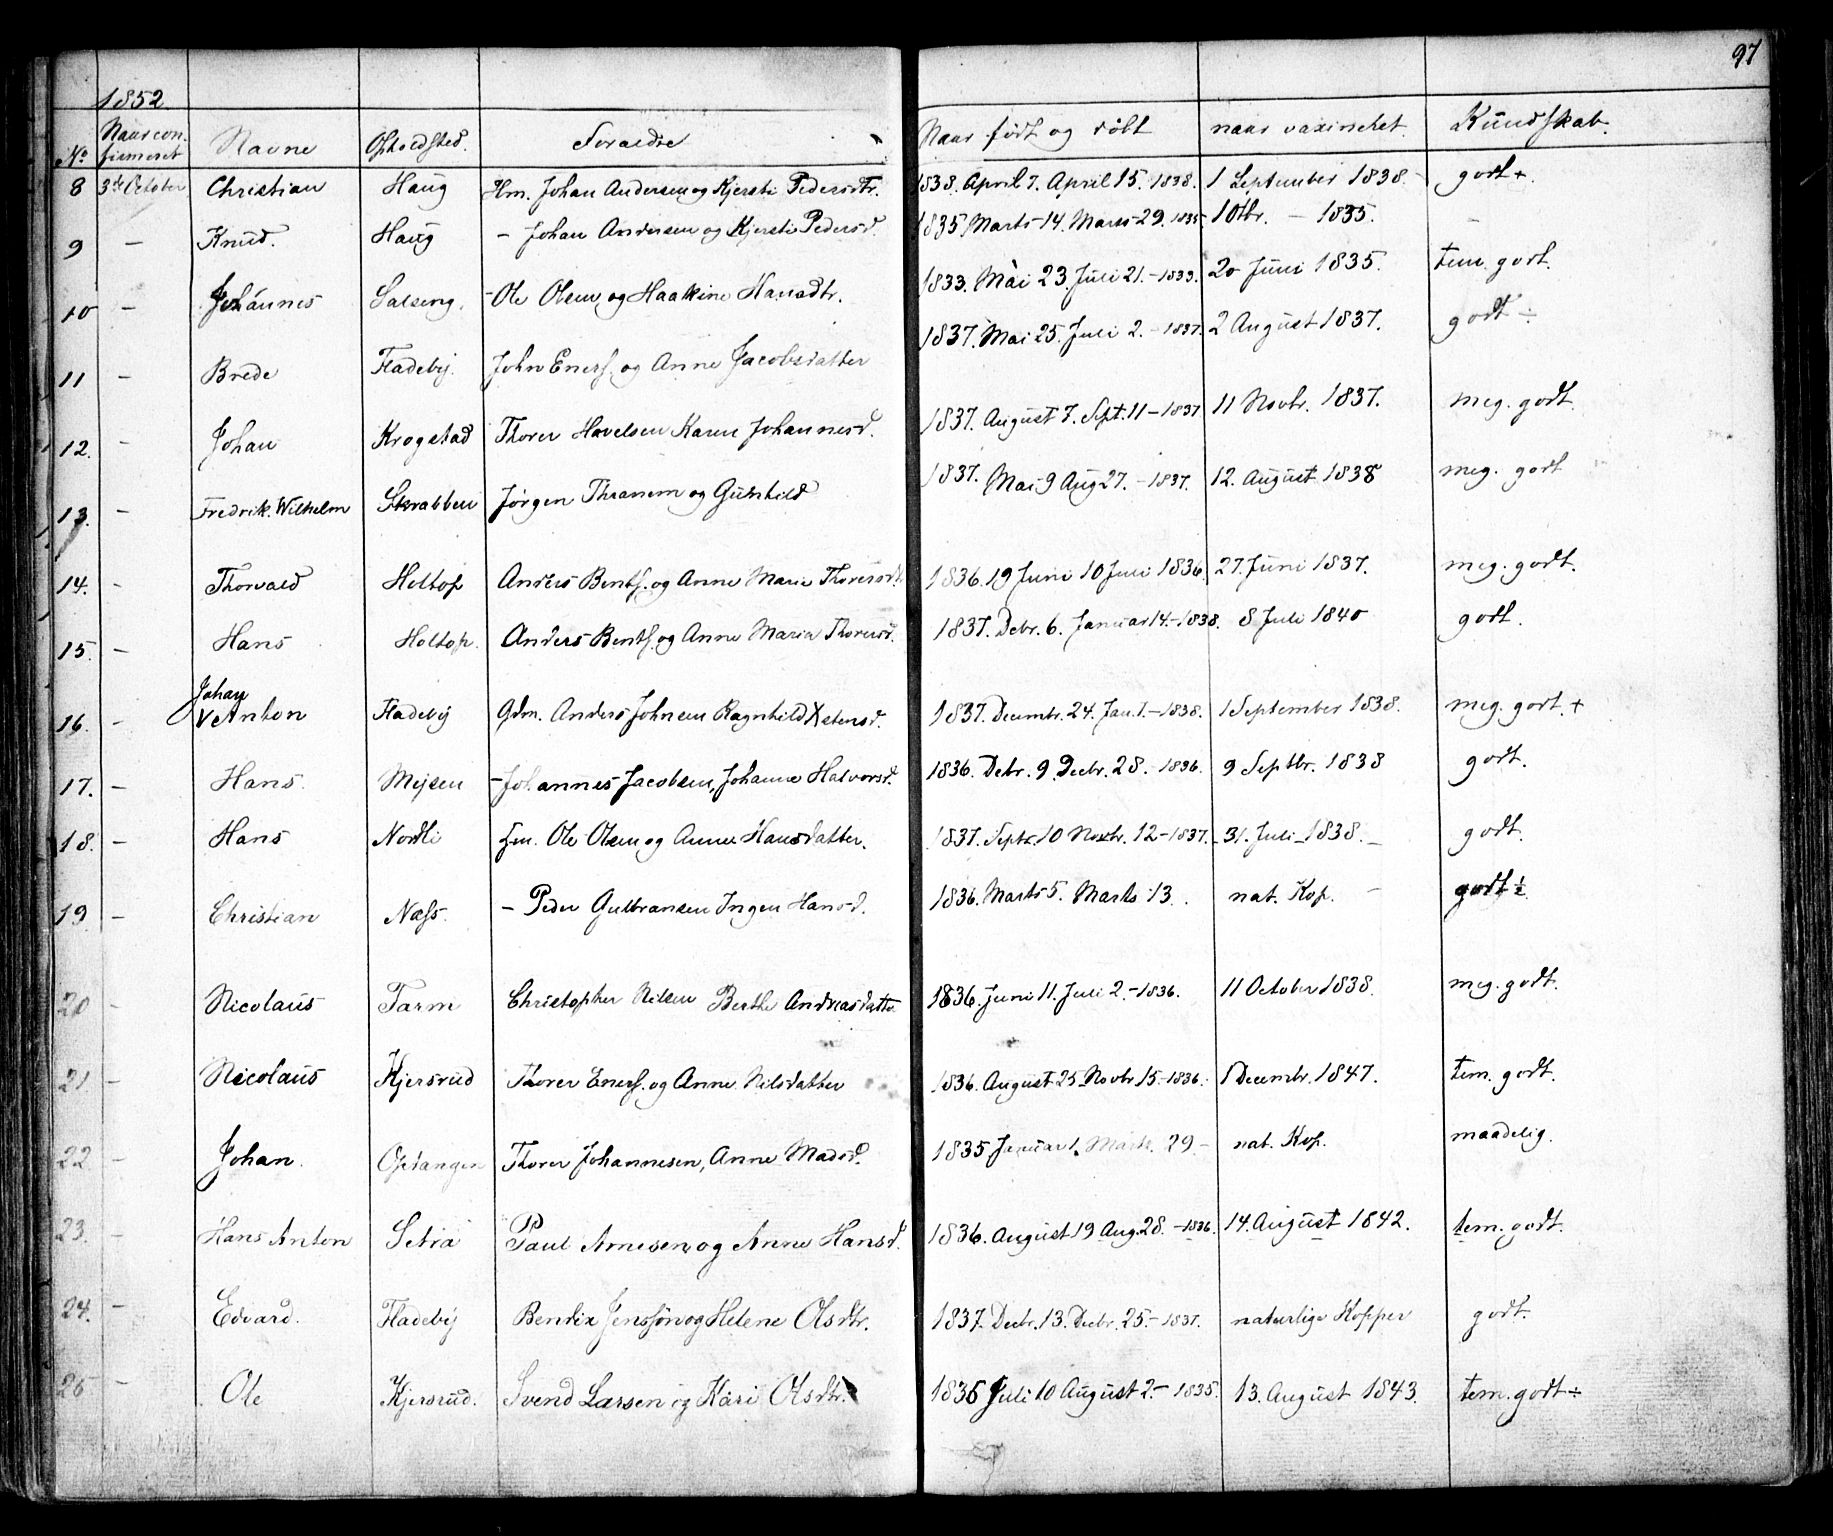 97
1852
No Naar con- firmeret Navne Opholdsted. Foraeldre Naar født og døbt naar vaxineret. Kundskab.
8 3de October Christian Haug Hm. Johan Andersen og Kjersti Pedersdtr. 1838. April 7. April 15. 1838. 1 September 1838 - godt +
9 - Knud. Haug - Johan Andersen og Kjersti Pedersd. 1835 Marts 14. Marts 29. 1835 1 Otbr. - 1835. -
10 - Johannes Salseng. - Ole Olsen og Haakine Hansdtr. 1833. Mai 23. Juli 21. - 1833. 20 Juni 1835. tem. godt.
11 - Brede Fladeby. John Eners. og Anne Jacobsdatter 1837. Mai 25. Juli 2. - 1837. 2 August 1837. godt ÷
12. - Johan Krogstad Thorer Havelsen Karen Johannesd. 1837. August 7. Spt. 11 - 1837 11 Novbr. 1837. meg. godt.
13. - Fredrik Wilhelm Skrabben Jørgen Thranem og Gunhild 1837. Mai 9 Aug 27. - 1837. 12. August 1838 meg. godt
14. - Thorvald Holtop Anders Bents. og Anne Marie Thoresdt. 1836. 19 Juni 10 Juli 1836. 27. Juni 1837. meg. godt.
15. - Hans Holtop. Anders Bents. og Anne Maria Thoresd. 1837. Debr. 6. Januar 14. - 1838. 8 Juli 1840 godt.
16. - Johan V Anton Fladeby Gdm. Anders Johnsen Ragnhild Xstensd. 1837. Decembr. 24. Jan. 1. - 1838. 1 September 1838. meg. godt. +
17. - Hans. Mejsen - Johannes Jacobsen, Johanne Halvorsd. 1836. Debr. 9. Decbr. 28. - 1836. 9 Septbr. 1838 godt.
18. - Hans Nordli Hm. Ole Olsen og Anne Hansdatter. 1837. Septr. 10 Novbr. 12 - 1837. 31. Juli - 1838. - godt.
19. - Christian Næss. - Peder Gulbransen Ingen Hansd. 1836. Marts 5. Marts 13. nat. Kop. - godt ÷
20 - Nicolaus Tarm Christopher Nilsen Berthe Andreasdatter 1836. Juni 11. Juli 2. - 1836. 11 October 1838. meg. godt.
21 - Nicolaus Kjersrud Thorer Eners. og Anne Nilsdatter 1836. August 25. Novbr 15. - 1836. 1 Decembr. 1847. tem. godt.
22 - Johan. Opstangen Thorer Johannesen, Anne Madsd. 1835 Januar 1. Marts. 29 - nat. Kop. maadelig.
23. - Hans Anton Setra Paul Arnesen og Anne Hansd. 1836. August 19 Aug. 28. - 1836. 14. August 1842. tem. godt.
24. - Edvard. Fladeby Bendix Jenssøn og Helene Olsdtr. 1837. Decbr. 13. Decbr. 25. - 1837. naturlige Kopper godt.
25 - Ole Kjersrud. Svend Larsen og Kari Olsdtr. 1835 Juli 10 August 2. - 1835. 13. August 1843. tem. godt ÷